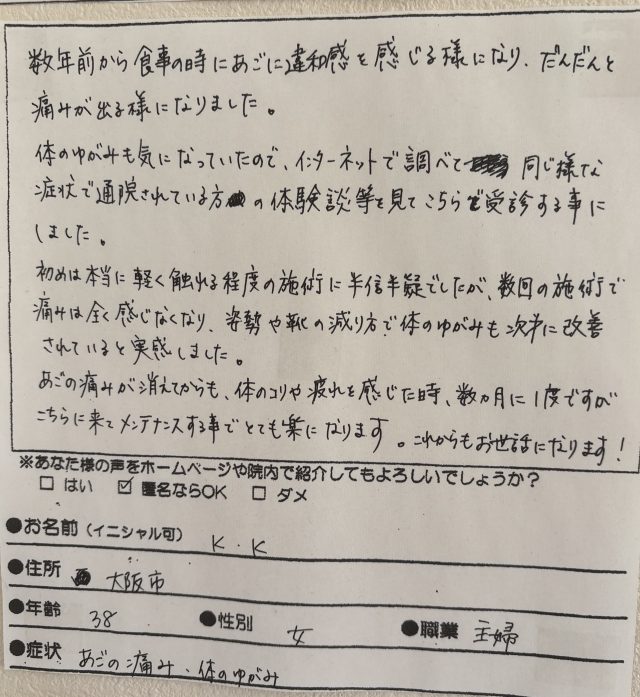 数年前から食事の時にあごに違和感を感じる様になり、だんだんと
痛みが出る様になりました。
体のゆがみも気になっていたので、インターネットで調べて 同じ様な
症状で通院されている方の体験談等を見てこちらで受診する事に
しました。
初めは本当に軽く触れる程度の施術に半信半疑でしたが、数回の施術で
痛みは全く感じなくなり、姿勢や靴の減り方で体のゆがみも次第に改善
されていると実感しました。
あごの痛みが消えてからも、体のコリや疲れを感じた時、数ヵ月に1度ですが
こちらに来てメンテナンスする事でとても楽になります。これからもお世話になります!
※あなた様の声をホームページや院内で紹介してもよろしいでしょうか?
□ はい ☑ 匿名ならOK □ ダメ
●お名前(イニシャル可) K.K
●住所 大阪市
●年齢 38 ●性別 女 ●職業 主婦
●症状 あごの痛み、体のゆがみ